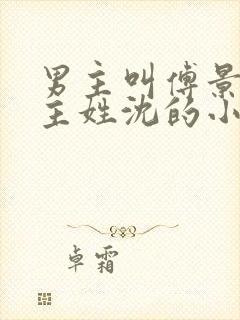 男主叫傅景
主姓沈的小
卓霜